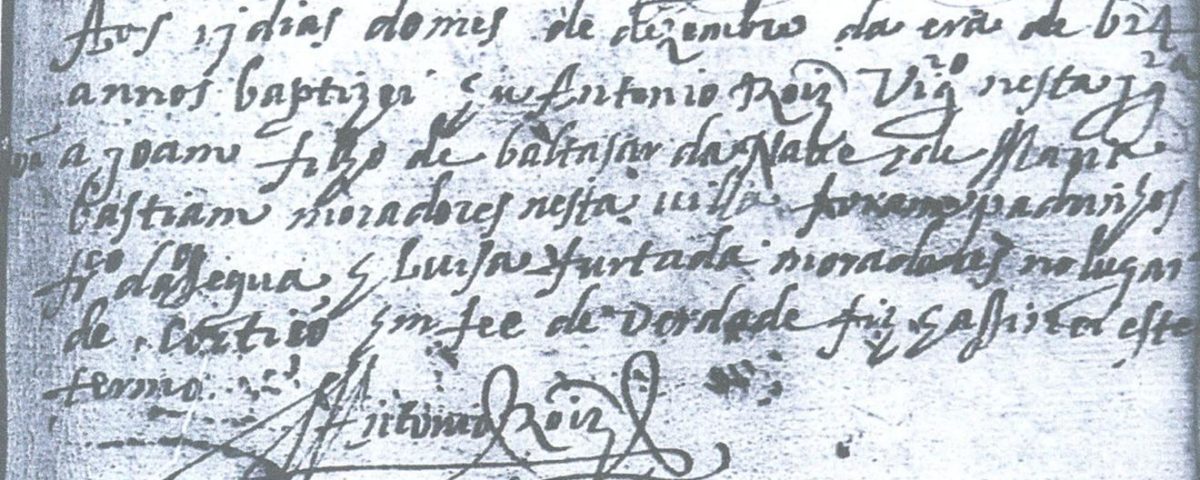 Aos 17 dias do mes de dezembro da era de
annos baptizei eu Antonio Roiz Vigro nesta Igra
a Joam filho de baltasar da Nave e de Maria
bastiam moradores nesta villa foram padrinhos
frco da Segua e Luisa furtada moradores no lugar
de cortiço em fee de verdade fiz e assinei este
termo.
Antonio Roiz